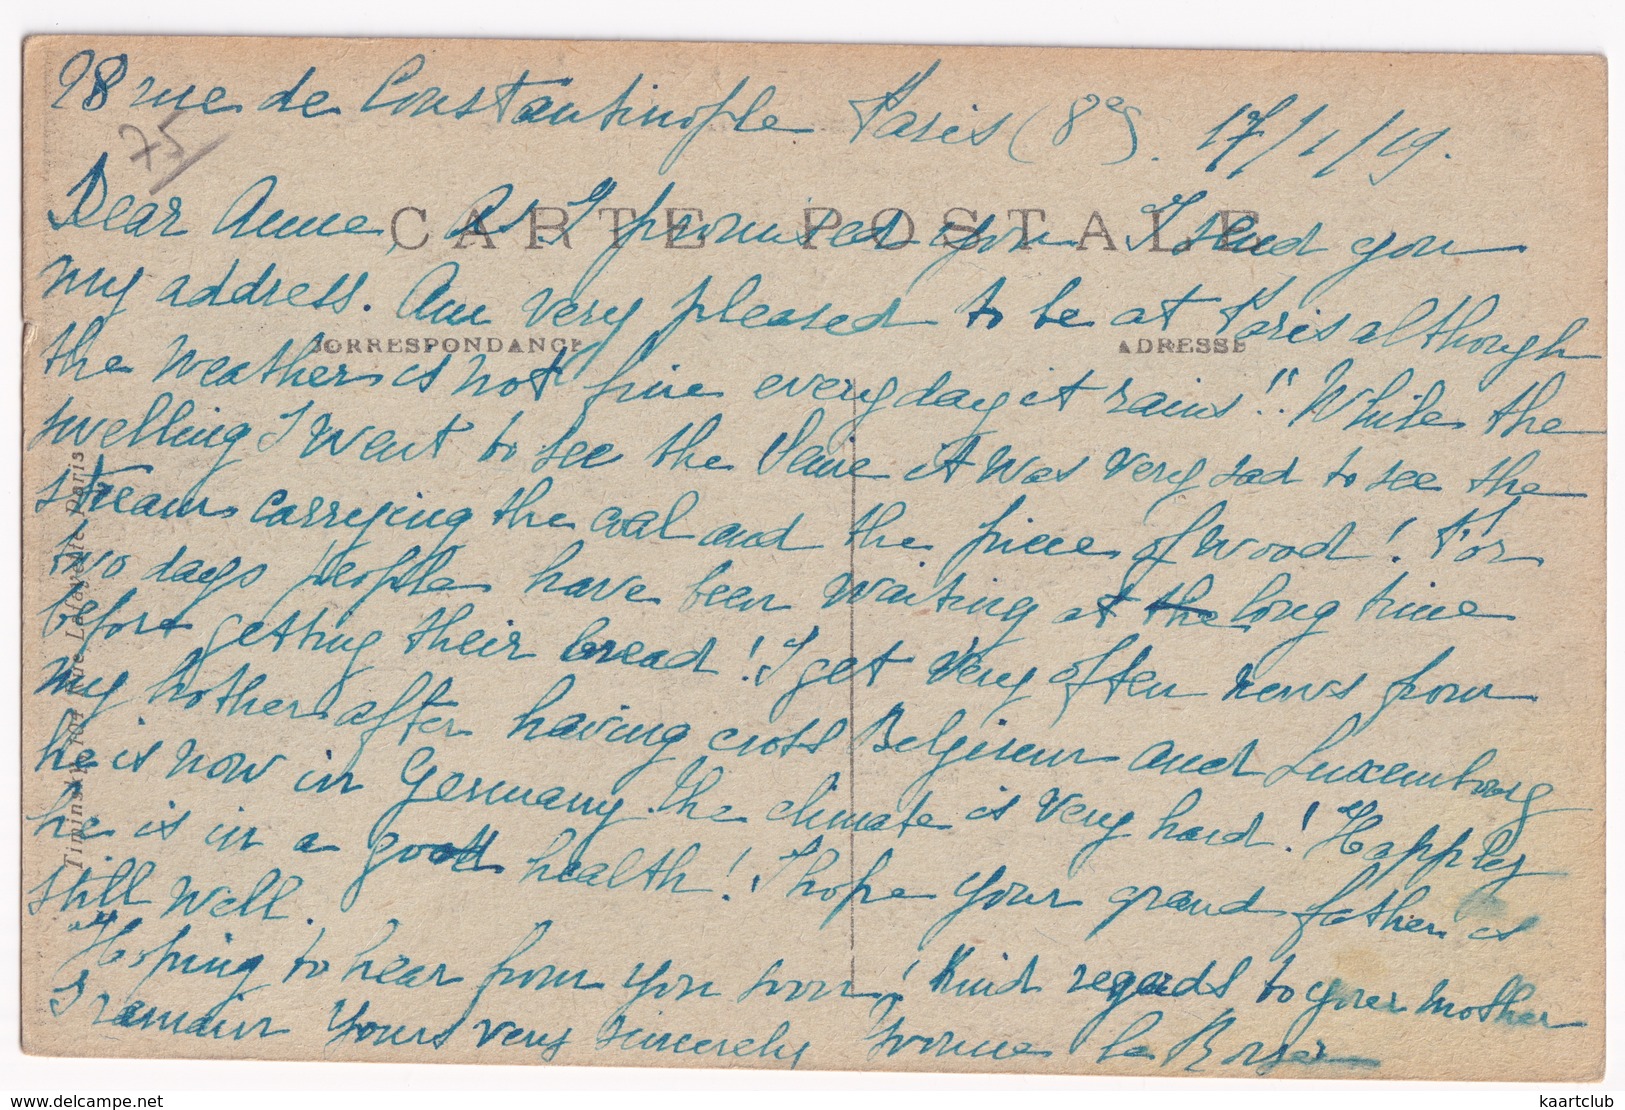 98 rue de Constantinople Paris (8e). 17/1/19.
75
CARTE POSTALE
Dear Anne, As I promised you I send you
my address. Am very pleased to be at Paris although
CORRESPONDANCE
ADRESSE
the weather is not fine every day it rains!! While the
swelling I went to see the Seine it was very sad to see the
stream carrying the coal and the piece of wood! For
two days people have been waiting at the long time
before getting their bread! I get very often news from
my brother after having cross Belgium and Luxembourg
he is now in Germany. The climate is very hard! Happily
he is in a good health! I hope your grand father is
still well.
Hoping to hear from you soon! Kind regards to your mother
I remain Yours very sincerely Yvonne
Timinsky, rue Lafayette, Paris
delcampe.net
kaartclub